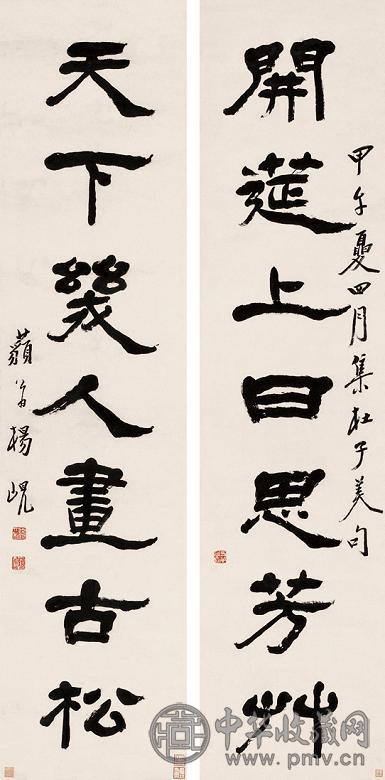 開筵上日思芳艸
甲午夏四月集杜子美句
天下幾人畫古松
藐翁楊峴
中华收藏网
www.pmv.cn